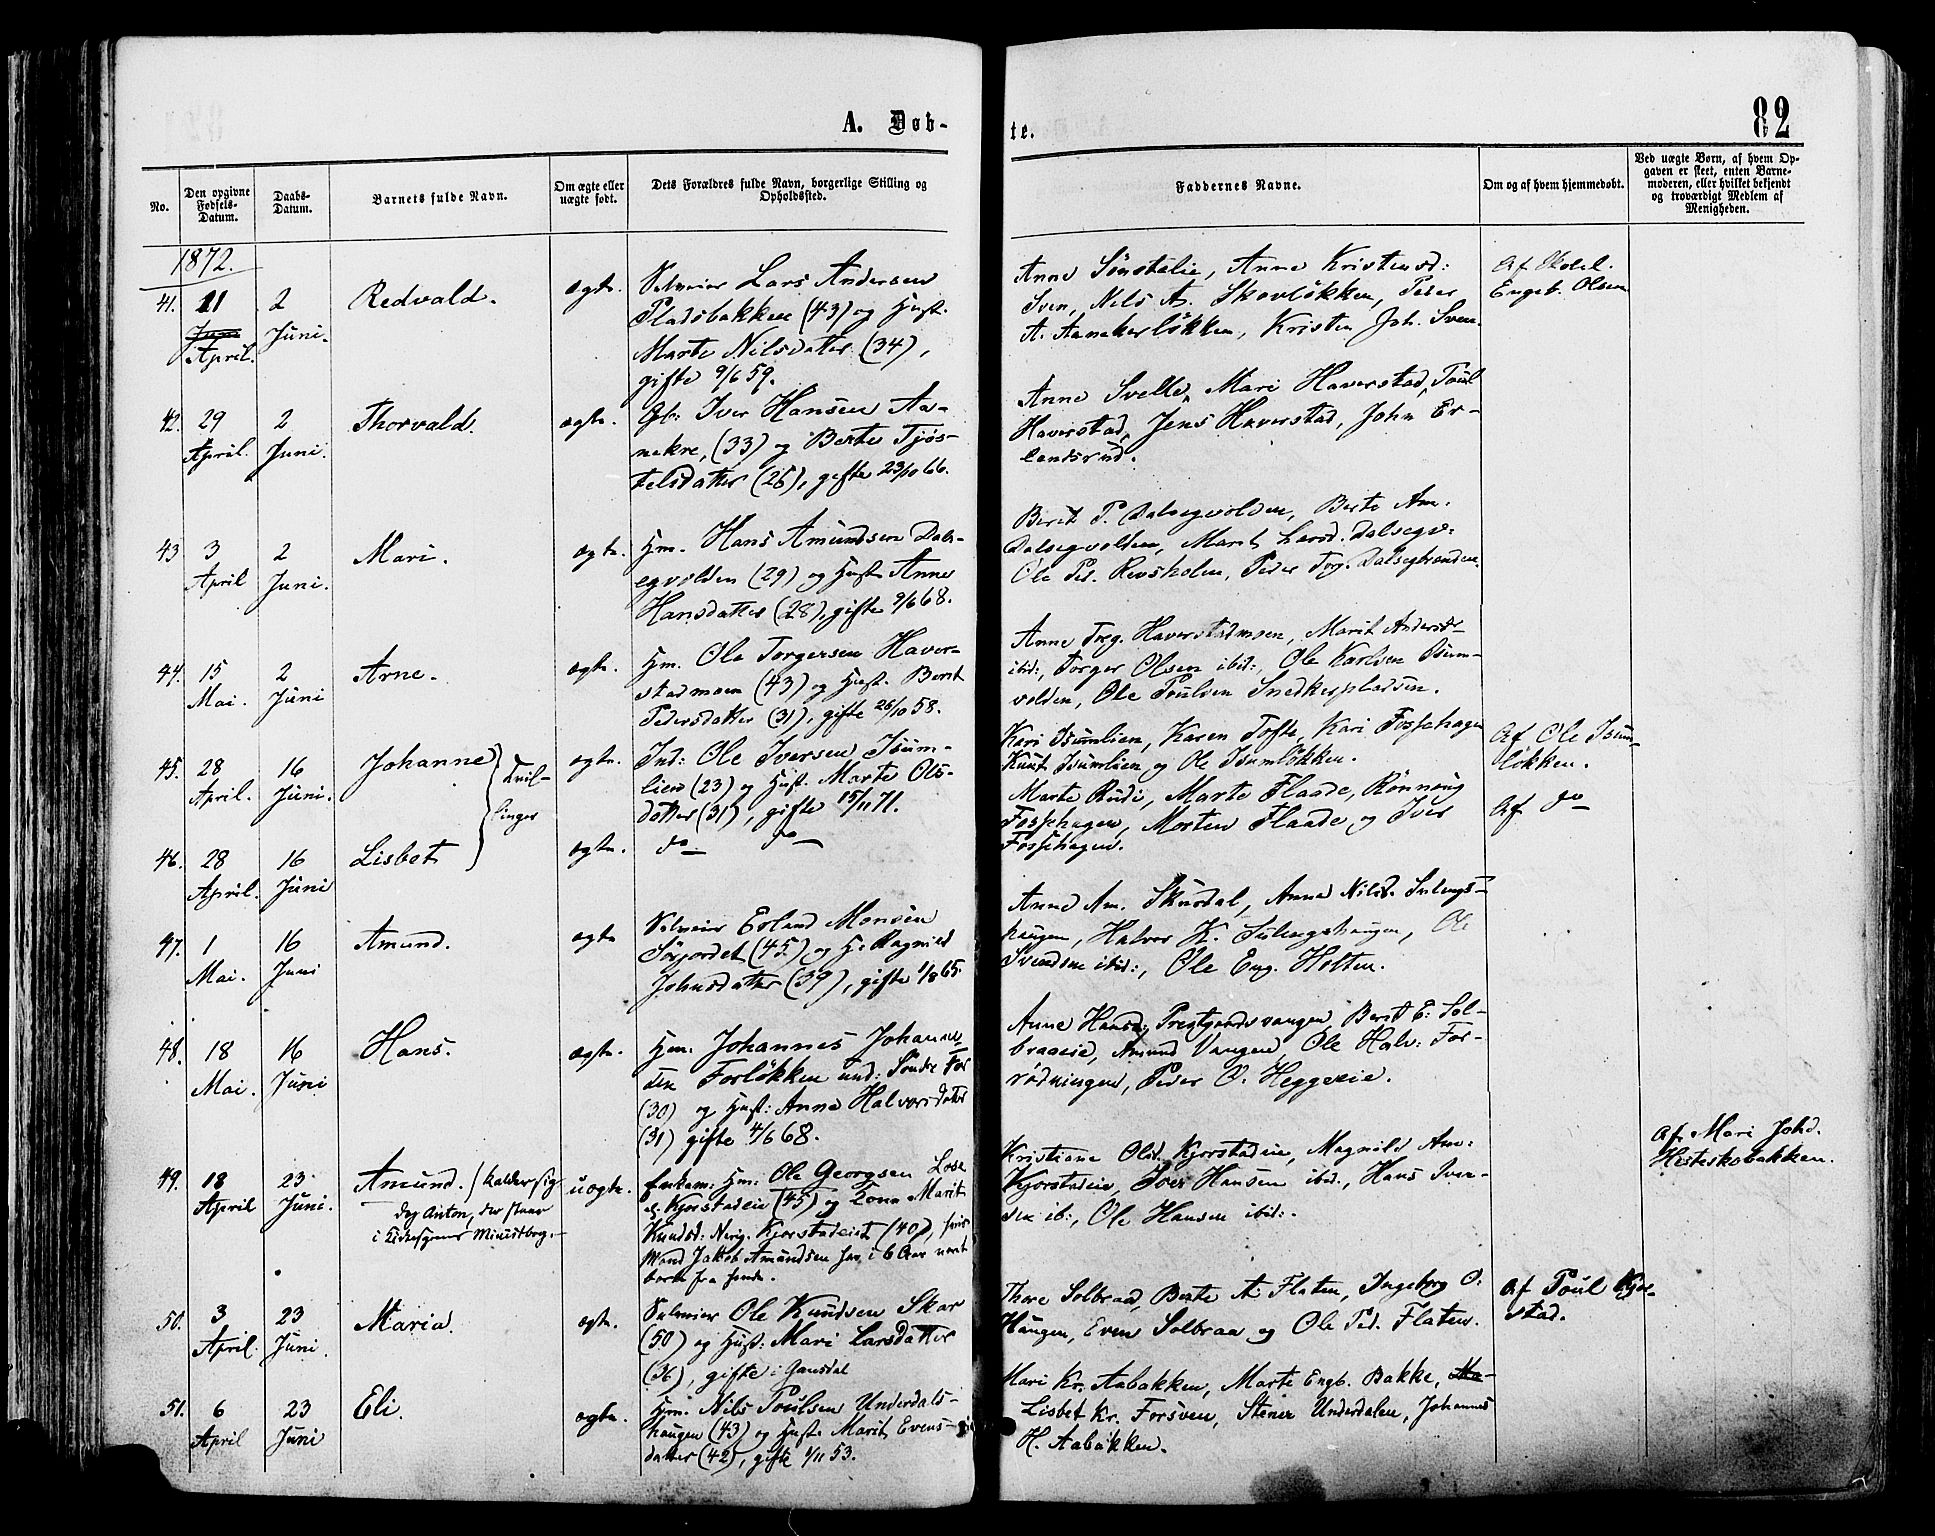 A. Døb-
te.
82
No.
Den opgivne Fødsels-Datum.
Daabs-Datum.
Barnets fulde Navn.
Om ægte eller uægte født.
Dets Forældres fulde Navn, borgerlige Stilling og Opholdssted.
Faddernes Navne.
Om og af hvem hjemmedøbt.
Ved uægte Børn, af hvem Op-
gaven er skeet, enten Barne-
moderen, eller hvilket bekjendt
og troværdigt Medlem af
Menigheden.
1872.
41. 11 Juni April. 2 Juni. Redvald. ægte.
Selveier Lars Andersen
Pladsbakken (43) og Hust.
Marte Nilsdatter (34),
gifte 9/6 59.
Anne Sønstelie, Anne Kristensd:
Sven, Nils A. Skovløkken, Peder
A. Aanekerløkken, Kristen Joh. Sven.
Af
Engeb. Olsen
42. 29 April. 2 Juni. Thorvald. ægte.
Gb: Iver Hansen Aa-
nekre, (33) og Berte Tjøs-
telsdatter (26), gifte 23/10 66.
Anne Svelle, Mari Haverstad, Poul
Haverstad, Jens Haverstad, John Er-
landsrud.
43 3 April 2 Juni. Mari. ægte.
Hm. Hans Amundsen Dals-
egvolden (29) og Hust. Anne
Hansdatter (28), gifte 9/6 68.
Berit P. Dalsegvolden, Berte Am.
Dalsegvolden, Marit Larsd. Dalsegv:
Ole Ped. Revsholen, Peder Torg. Dalsegbranden.
44. 15 Mai. 2 Juni Arne. ægte.
Hm. Ole Torgersen Haver-
stadmoen (43) og Hust. Berit
Pedersdatter (31), gifte 26/10 58.
Anne Torg. Haverstadmoen, Marit Andersdr
ibid:, Torger Olsen ibid:, Ole Karlsen Isum-
volden, Ole Poulsen Snedkerpladsen.
45. 28 April. 16 Juni. Johanne Tvil- ægte.
Ind: Ole Iversen Isum-
lien (23) og Hust. Marte Ols-
datter (31), gifte 15/11 71.
Kari Isumlien, Karen Tofte, Kari Fossehagen
Knut Isumlien og Ole Isumløkken.
Af Ole Isum-
løkken.
46. 28 April. 16 Juni Lisbet linger ægte. do do
Marte Rudi, Marte Flaade, Rønnaug
Fossehagen, Morten Flaade og Iver
Fossehagen.
Af do
47. 1 Mai. 16 Juni Amund. ægte
Selveier Erland Monsen
Sørjordet (45) og H. Ragnild
Johnsdatter (39), gifte 1/8 65.
Anne Am. Skurdal, Anne Nilsd. Sylvgs-
haugen, Halvor K. Sylvgshaugen, Ole
Svendsen ibid:, Ole Eng. Holten.
48. 18 Mai. 16 Juni Hans. ægte.
Hm. Johannes Johannes-
sen Forløkken und: Søndre For
(30) og Hust: Anne Halvorsdatter
(31) gifte 4/6 68.
Anne Hansd: Prestgaardsvangen, Berit E: Sol-
braaeie, Amund Vangen, Ole Halv: For-
rødningen, Peder O. Heggerie.
49. 18 April 23 Juni. Amund. / kalder sig
dog Anton, der staar
i Kirkesognets Ministbog.
uægte.
Enkem: Hm: Ole Georgsen Lose
Kjorstadeie (45) og Kone Marit
Knudsd: Kjorstadeiet (40), hvis
Mand Jakob Amundsen har i 6 Aar været
borte fra hende.
Kristiane Olsd. Kjorstadeie, Magnild Am:
Kjorstadeie, Iver Hansen ibid., Hans Iver-
sen ib:, Ole Hansen ibid:.
Af Mari Johd.
Hesteskobakken.
50. 3 April. 23 Juni. Maria. ægte.
Selveier Ole Knudsen Skar
(50) og Hust: Mari Larsdatter
(36), gifte i Gausdal
Thore Solbraa, Berte A. Flaten, Ingeborg O:
Haugen, Even Solbraa og Ole Ped. Flaten.
Af Poul Kjor-
stad.
51. 6 April 23 Juni Eli. ægte.
Hm. Nils Poulsen Underdals-
haugen (43) og Hust. Marit Evens-
datter (42), gifte 1/11 53.
Mari Kr. Aabakken, Marte Engb. Bakke, Ma
Lisbet Kr. Forsven, Stener Underdalen, Johannes
H. Aabakken.